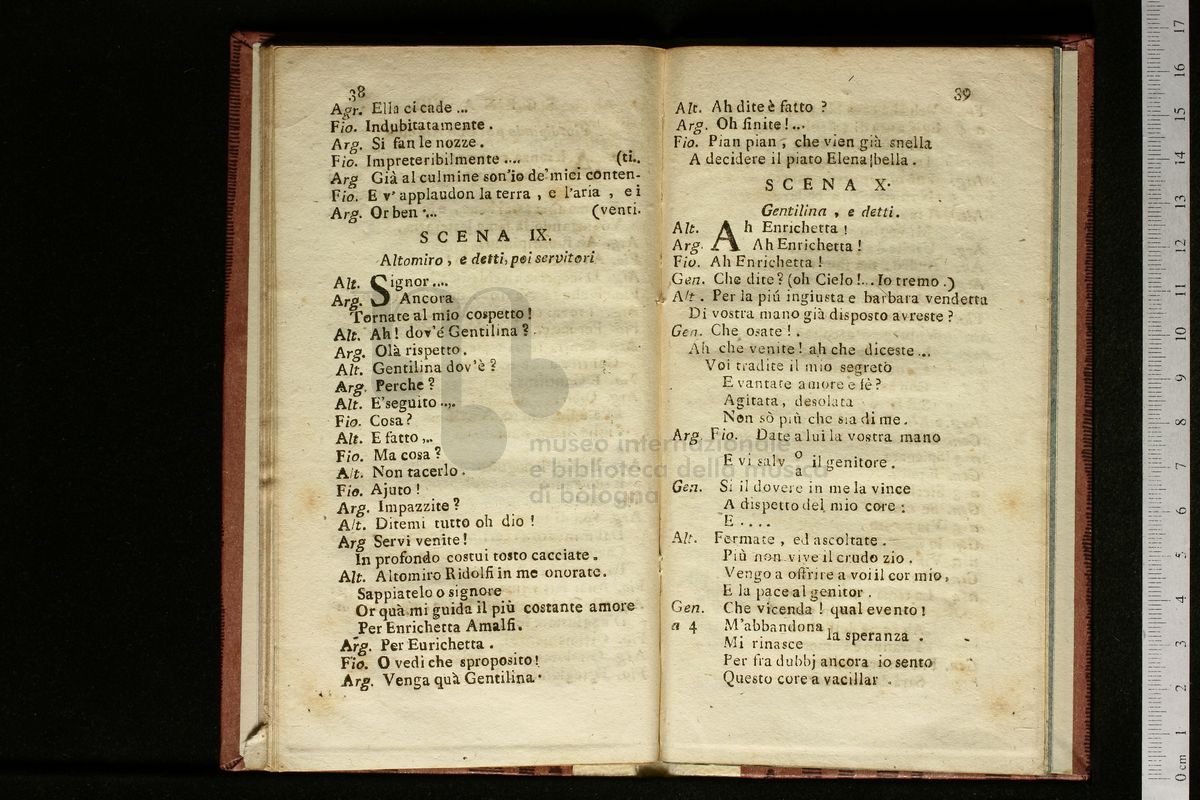 38
Agr. Ella ci cade ...
Fio. Indubitatamente.
Arg. Si fan le nozze.
Fio. Impreteribilmente .... (ti..
Arg Già al culmine son'io de' miei conten-
Fio. E v' applaudon la terra, e l'aria, e i
Arg. Or ben ... (venti.
SCENA IX.
Altomiro, e detti, poi servitori
Alt. Signor ....
Arg. Ancora
Tornate al mio cospetto!
Alt. Ah! dov'é Gentilina?
Arg. Olà rispetto.
Alt. Gentilina dov'è?
Arg. Perche?
Alt. E' seguito ....
Fio. Cosa?
Alt. E fatto ...
Fio. Ma cosa?
Alt. Non tacerlo.
Fio. Ajuto!
Arg. Impazzite?
Alt. Ditemi tutto oh dio!
Arg Servi venite!
In profondo costui tosto cacciate.
Alt. Altomiro Ridolfi in me onorate.
Sappiatelo o signore
Or quà mi guida il più costante amore
Per Enrichetta Amalfi.
Arg. Per Eurichetta.
Fio. O vedi che sproposito!
Arg. Venga quà Gentilina.
39
Alt. Ah dite è fatto?
Arg. Oh finite! ...
Fio. Pian pian, che vien già snella
A decidere il piato Elena bella.
SCENA X.
Gentilina, e detti.
Alt. Ah Enrichetta!
Arg. Ah Enrichetta!
Fio. Ah Enrichetta!
Gen. Che dite? (oh Cielo!... Io tremo.)
Alt. Per la piú ingiusta e barbara vendetta
Di vostra mano già disposto avreste?
Gen. Che osate!.
Ah che venite! ah che diceste ...
Voi tradite il mio segreto
E vantate amore e fè?
Agitata, desolata
Non sò più che sia di me.
Arg Fio. Date a lui la vostra mano
E vi salv o/a il genitore.
Gen. Si il dovere in me la vince
A dispetto del mio core:
E ....
Alt. Fermate, ed ascoltate.
Più non vive il crudo zio.
Vengo a offrire a voi il cor mio,
E la pace al genitor.
Gen. Che vicenda! qual evento!
a 4 M'abbandona
Mi rinasce la speranza.
Per fra dubbj ancora io sento
Questo core a vacillar.
museo internazionale
e biblioteca della musica
di bologna
0 cm 1 2 3 4 5 6 7 8 9 10 11 12 13 14 15 16 17